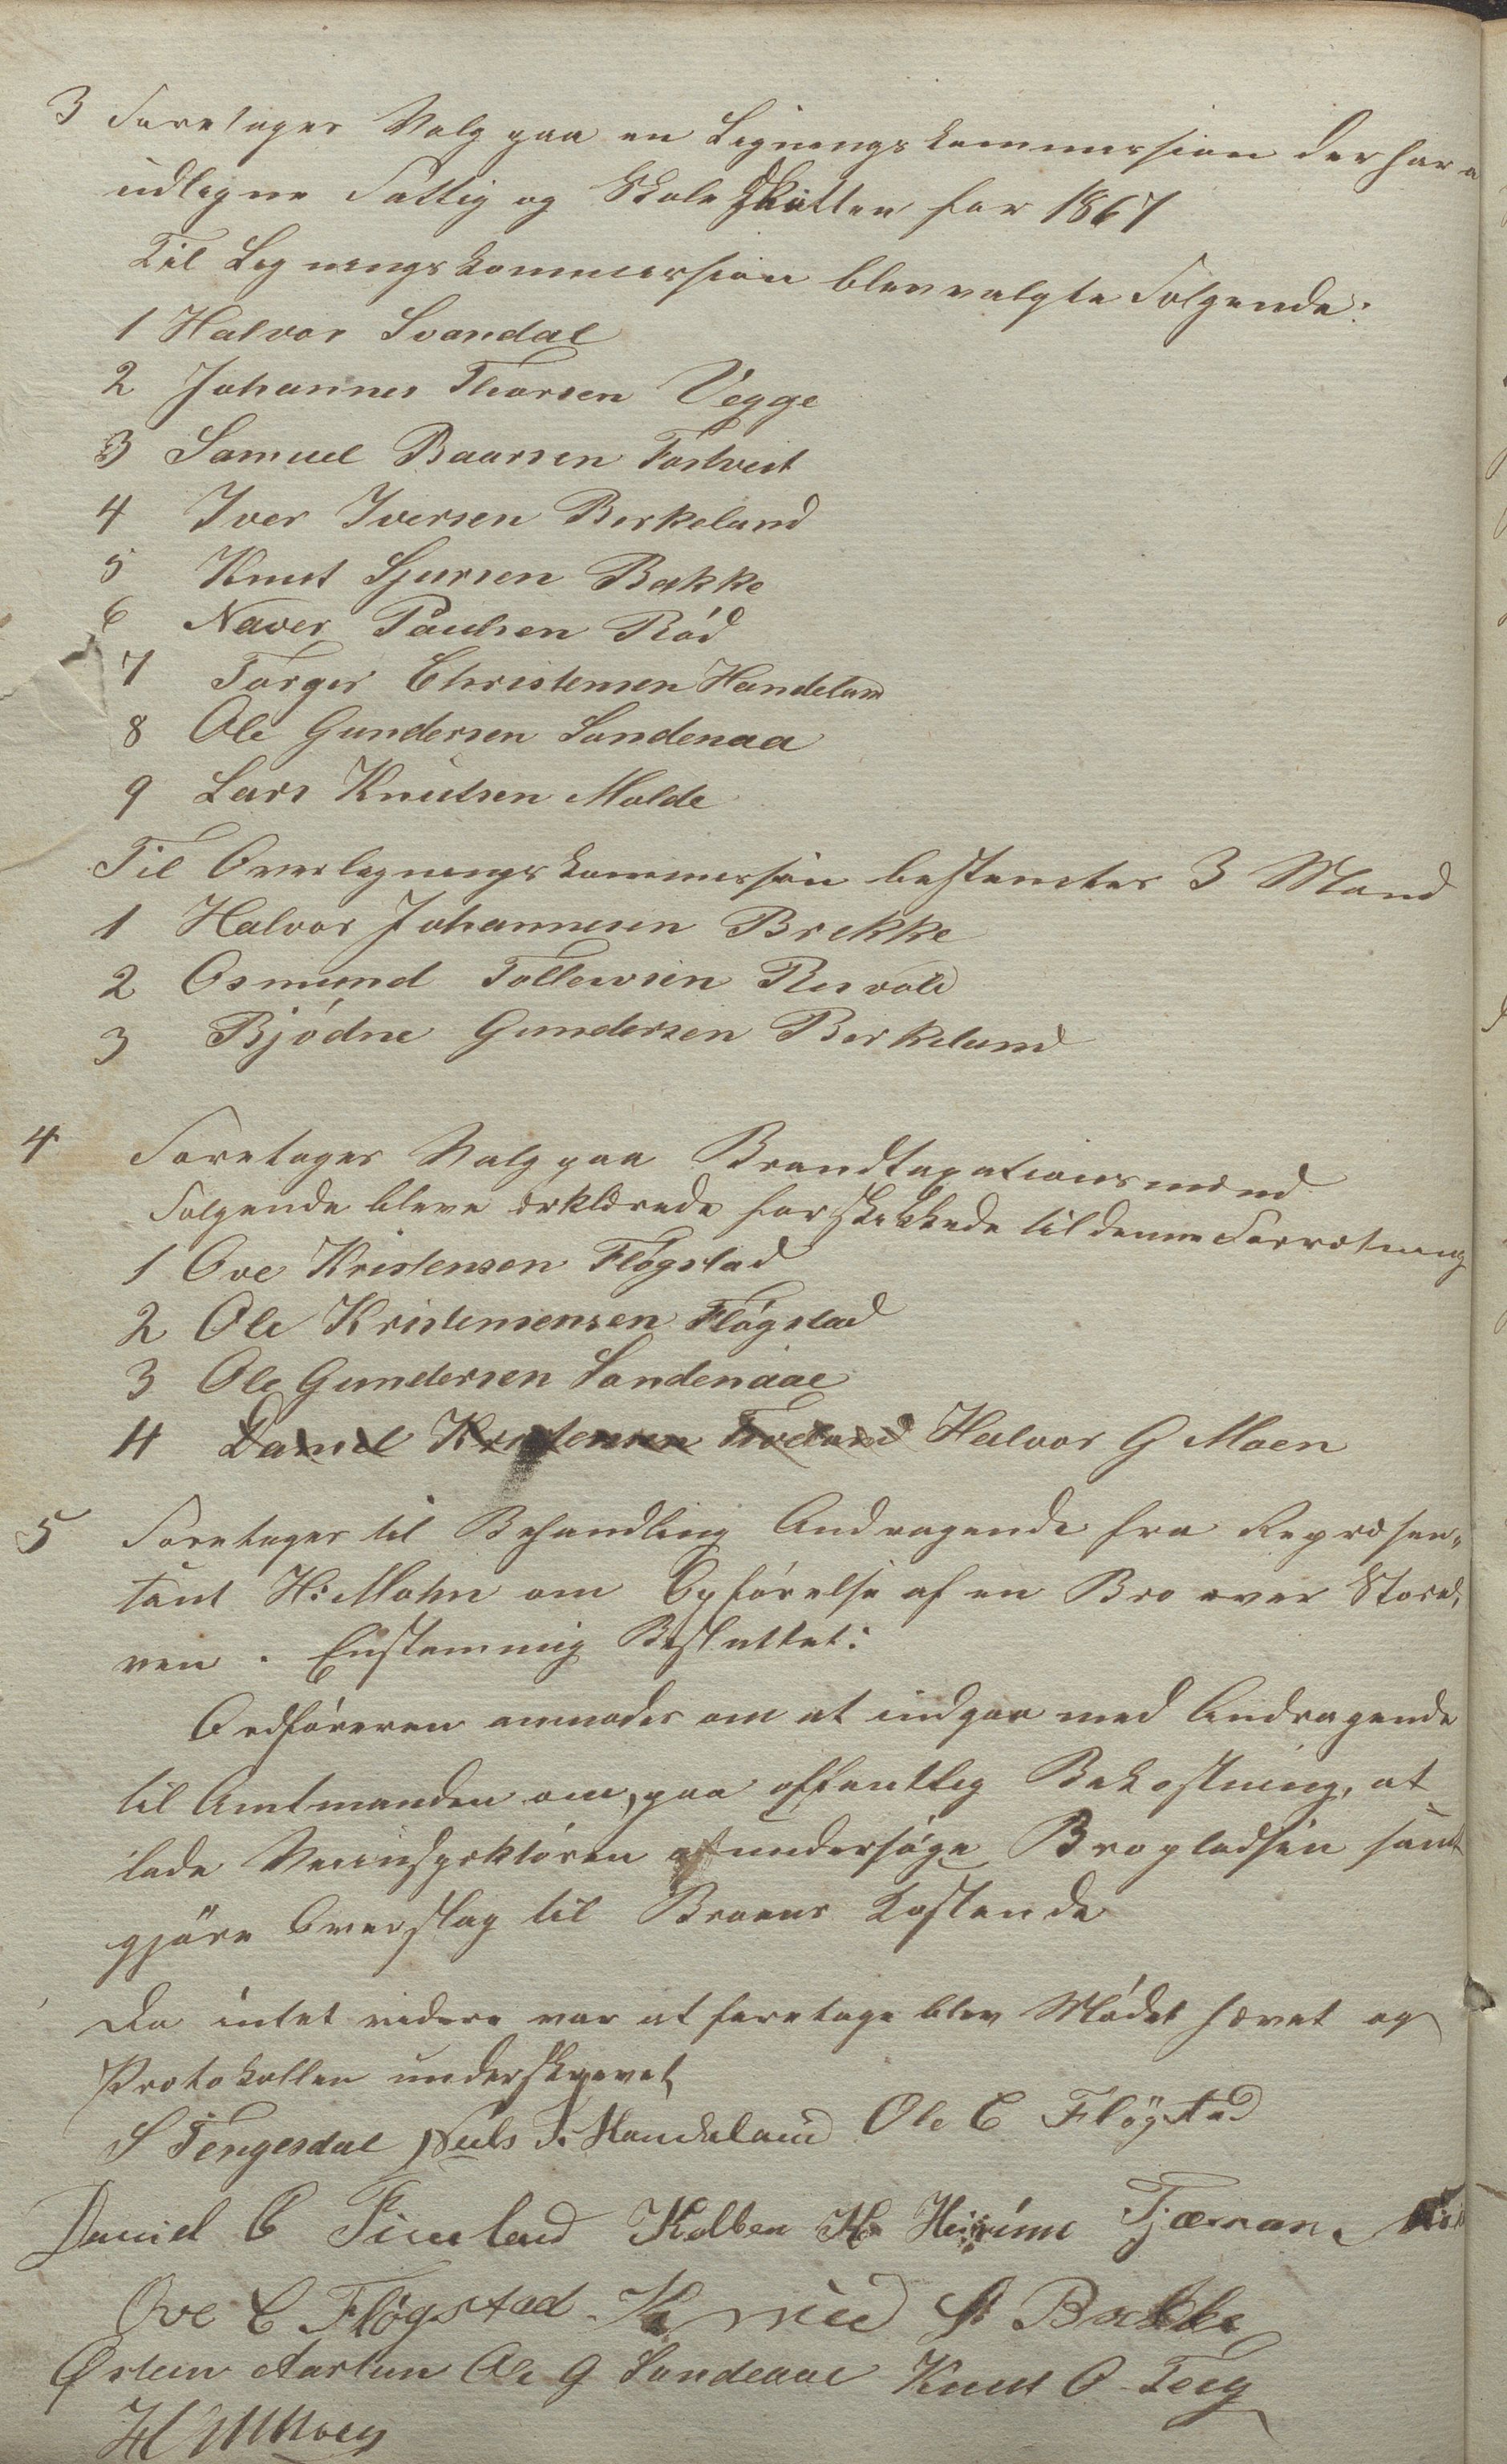 3 Foretages Valg paa en Ligningskommission der har a
udligne Fattig og Skoleskatten for 1867
Til Ligningskommission blev valgte Følgende:
1 Halvor Svandal
2 Johannes Thorsen Vegge
3 Samuel Baarsen Fostveit
4 Iver Iversen Birkeland
5 Knut Sjursen Bakke
6 Naver Paulsen Rød
7 Torger Christensen Handeland
8 Ole Gundersen Sandenaa
9 Lars Knutsen Molde
Til Overligningskommission bestemtes 3 Mand
1 Halvor Johannesen Brekke
2 Osmund Tollevsen Risvold
3 Bjødne Gundersen Birkeland
4 Foretages Valg paa Brandtaxationsmænd
Følgende bleve erklærede for skikkede til denne Forretning
1 Ove Kristensen Fløgstad
2 Ole Kristensensen Fløgstad
3 Ole Gundersen Sandenaae
4 Daniel Kristensen Halvor G Moen
5 Foretages til Behandling Andragende fra Repræsen„
tant H: Mohn om Opførelse af en Bro over Storel„
ven. Enstemmig Besluttet:
Ordføreren anmodes om at indgaa med Andragende
til Amtmanden om, paa offentlig Bekostning, at
lade Veiinspektøren undersøge Bropladsen samt
gjøre Overslag til Broens Kostende
Da intet videre var at foretage blev Mødet hævet og
Protokollen underskrevet
S Tengesdal Neels T. Handeland Ole C Fløgstad
Daniel C Fiveland Kolben H. Heirinne Tjæran.
Ove C Fløgstad. K S Bakke
Østein Aartun Ole G Sandenaae Knut O Teig